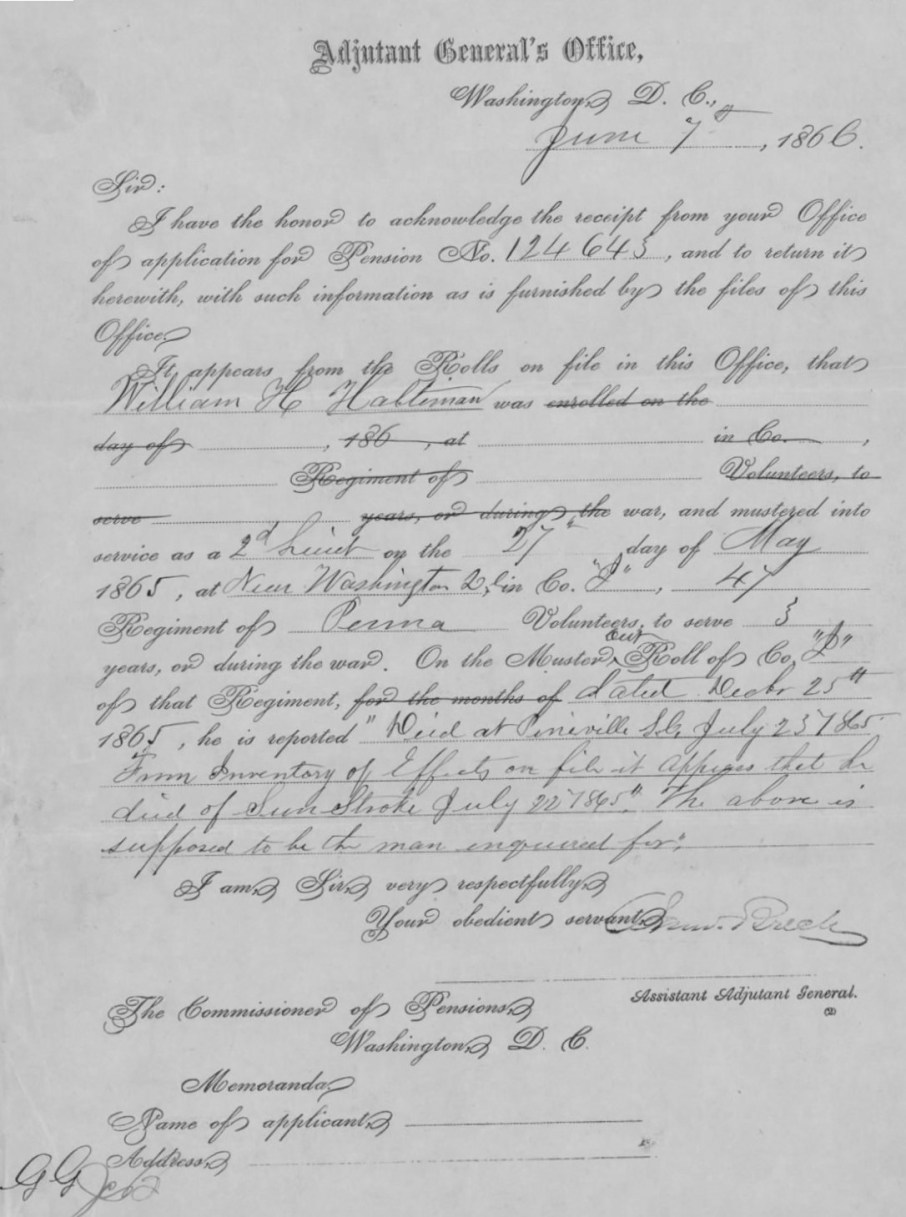 Adjutant General's Office,
Washington, D. C.,
June 7th, 1866.
Sir:
I have the honor to acknowledge the receipt from your Office
of application for Pension No. 124643, and to return it
herewith, with such information as is furnished by the files of this
Office.
It appears from the Rolls on file in this Office, that
William H Haltiman was enrolled on the
day of , 186 , at in Co. ,
Regiment of Volunteers, to
serve years, or during the war, and mustered into
service as a 2d Lieut on the 27th day of May
1865, at Near Washington D.C. in Co. "I", 47
Regiment of Penna Volunteers, to serve 3
years, or during the war. On the Muster out Roll of Co. "I"
of that Regiment, for the months of dated Decbr 25th
1865, he is reported "Died at Pineville S.C. July 23 1865.
From Inventory of Effects on file it appears that he
died of Sun Stroke July 22 1865". The above is
supposed to be the man enquired for.
I am, Sir, very respectfully,
Your obedient servant,
Saml. Breck
Assistant Adjutant General.
(2)
The Commissioner of Pensions,
Washington, D. C.
Memoranda,
Name of applicant,
Address,
GG